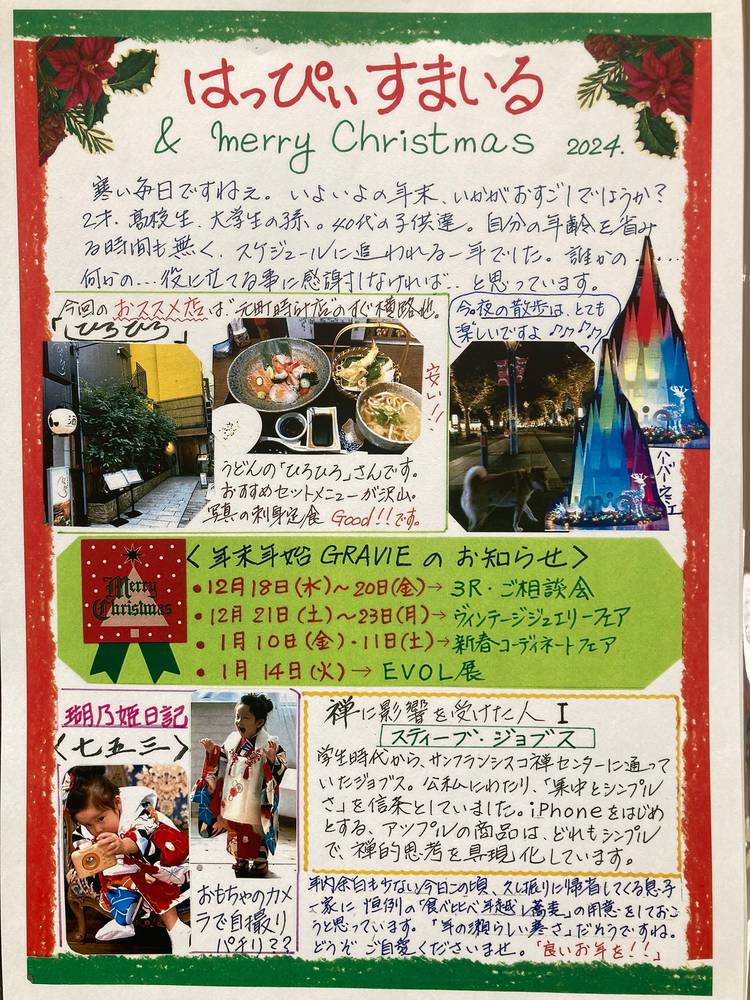 はっぴぃすまいる
& merry Christmas 2024.
寒い毎日ですねぇ。いよいよの年末、いかがおすごしでしょうか?
2才、高校生、大学生の孫。40代の子供達。自分の年齢を省み
る時間も無く、スケジュールに追われる一年でした。誰かの....
何かの...役に立てる事に感謝しなければ..と思っています。
今回のおススメ店は"元町時計店"のすぐ横路地。
「ひろひろ」
安い!!
うどんの「ひろひろ」さんです。
おすすめセットメニューが沢山。
写真の刺身定食 Good!!です。
今夜の散歩は、とても
楽しいですよ♪♪♪♪
酒
umie
<年末年始 GRAVIE の お知らせ>
Merry
Christmas
•12月18日(水)~20日(金)→3R・ご相談会
•12月21日(土)~23日(月)→ヴィンテージジュエリーフェア
•1月10日(金)・11日(土)→新春コーディネートフェア
•1月14日(火)→EVOL展
瑚乃姫日記
<七五三>
おもちゃのカメ
ラで自撮り
パチリ??
禅に影響を受けた人 I
スティーブ・ジョブス
学生時代から、サンフランシスコ禅センターに通って
いたジョブス。公私にわたり、「集中とシンプル
さ」を信条としていました。iPhoneをはじめ
とする、アップルの商品は、どれもシンプル
で、禅的思考を具現化しています。
年内余白も少ない今日この頃、久し振りに帰省してくる息子
一家に 恒例の「食べ比べ年越し蕎麦」の用意をしておこ
うと思っています。「年の瀬らしい寒さ」だそうですね。
どうぞ ご自愛くださいませ。「良いお年を!!」